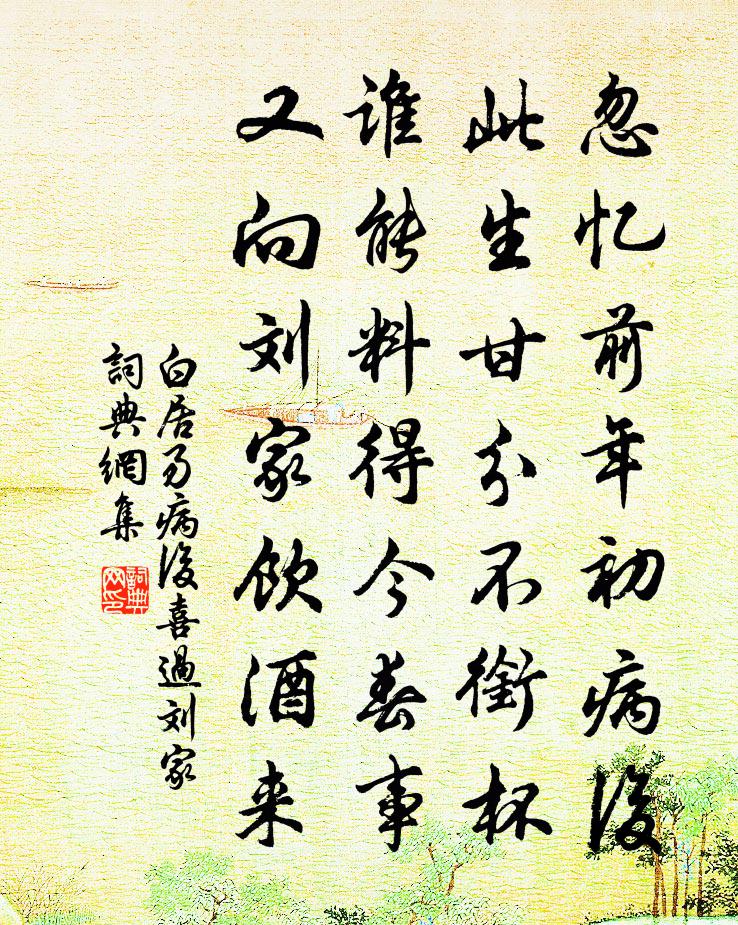 忽忆前年初病後
此生甘分不銜杯
谁能料得今春事
又向刘家饮酒来
白居易病後喜過刘家
詞典網集
詞典
网印